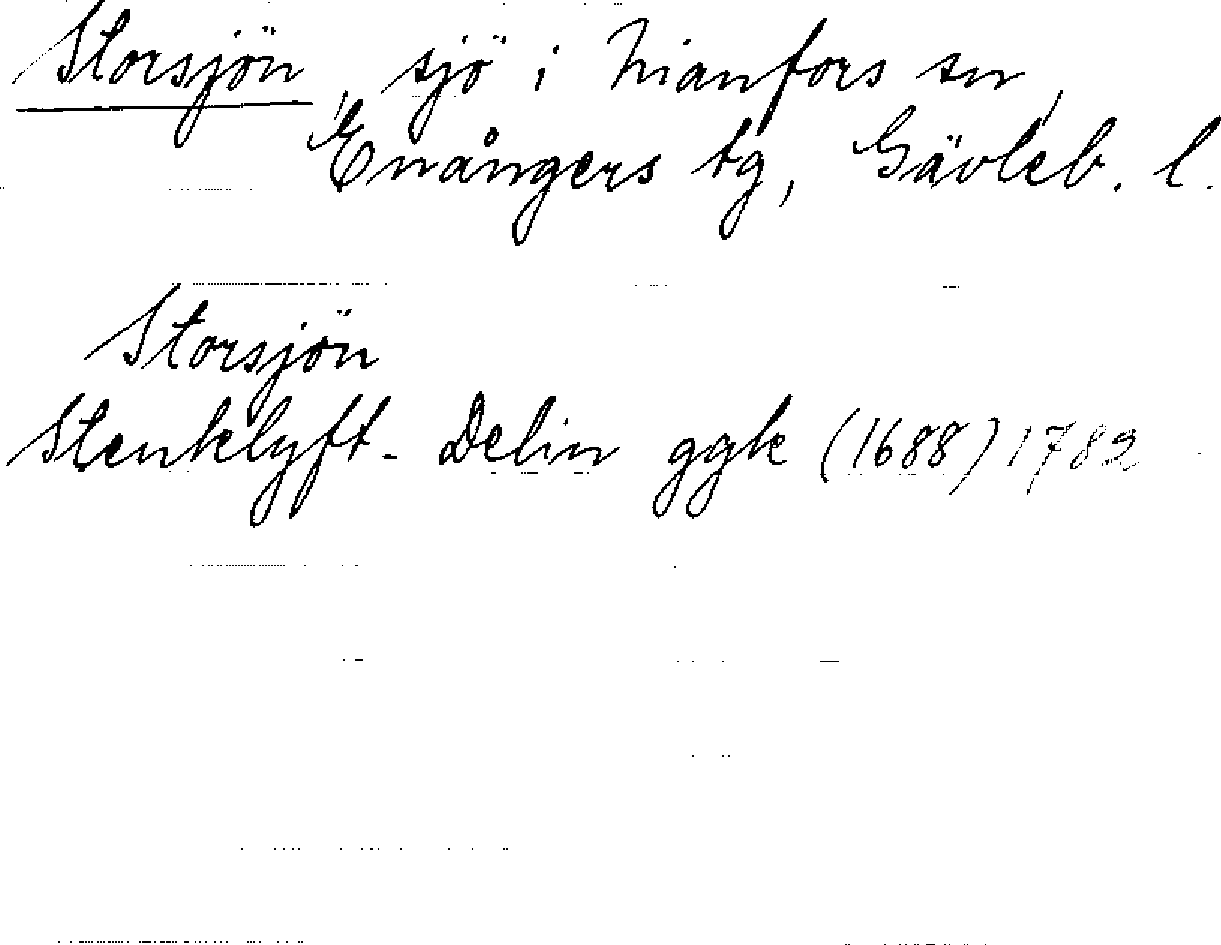 Storsjön, sjö i Nianfors sn,
Enångers tg, Gävleb. l.
Storsjön
Stenklyft-Delin ggk (1688) 1782